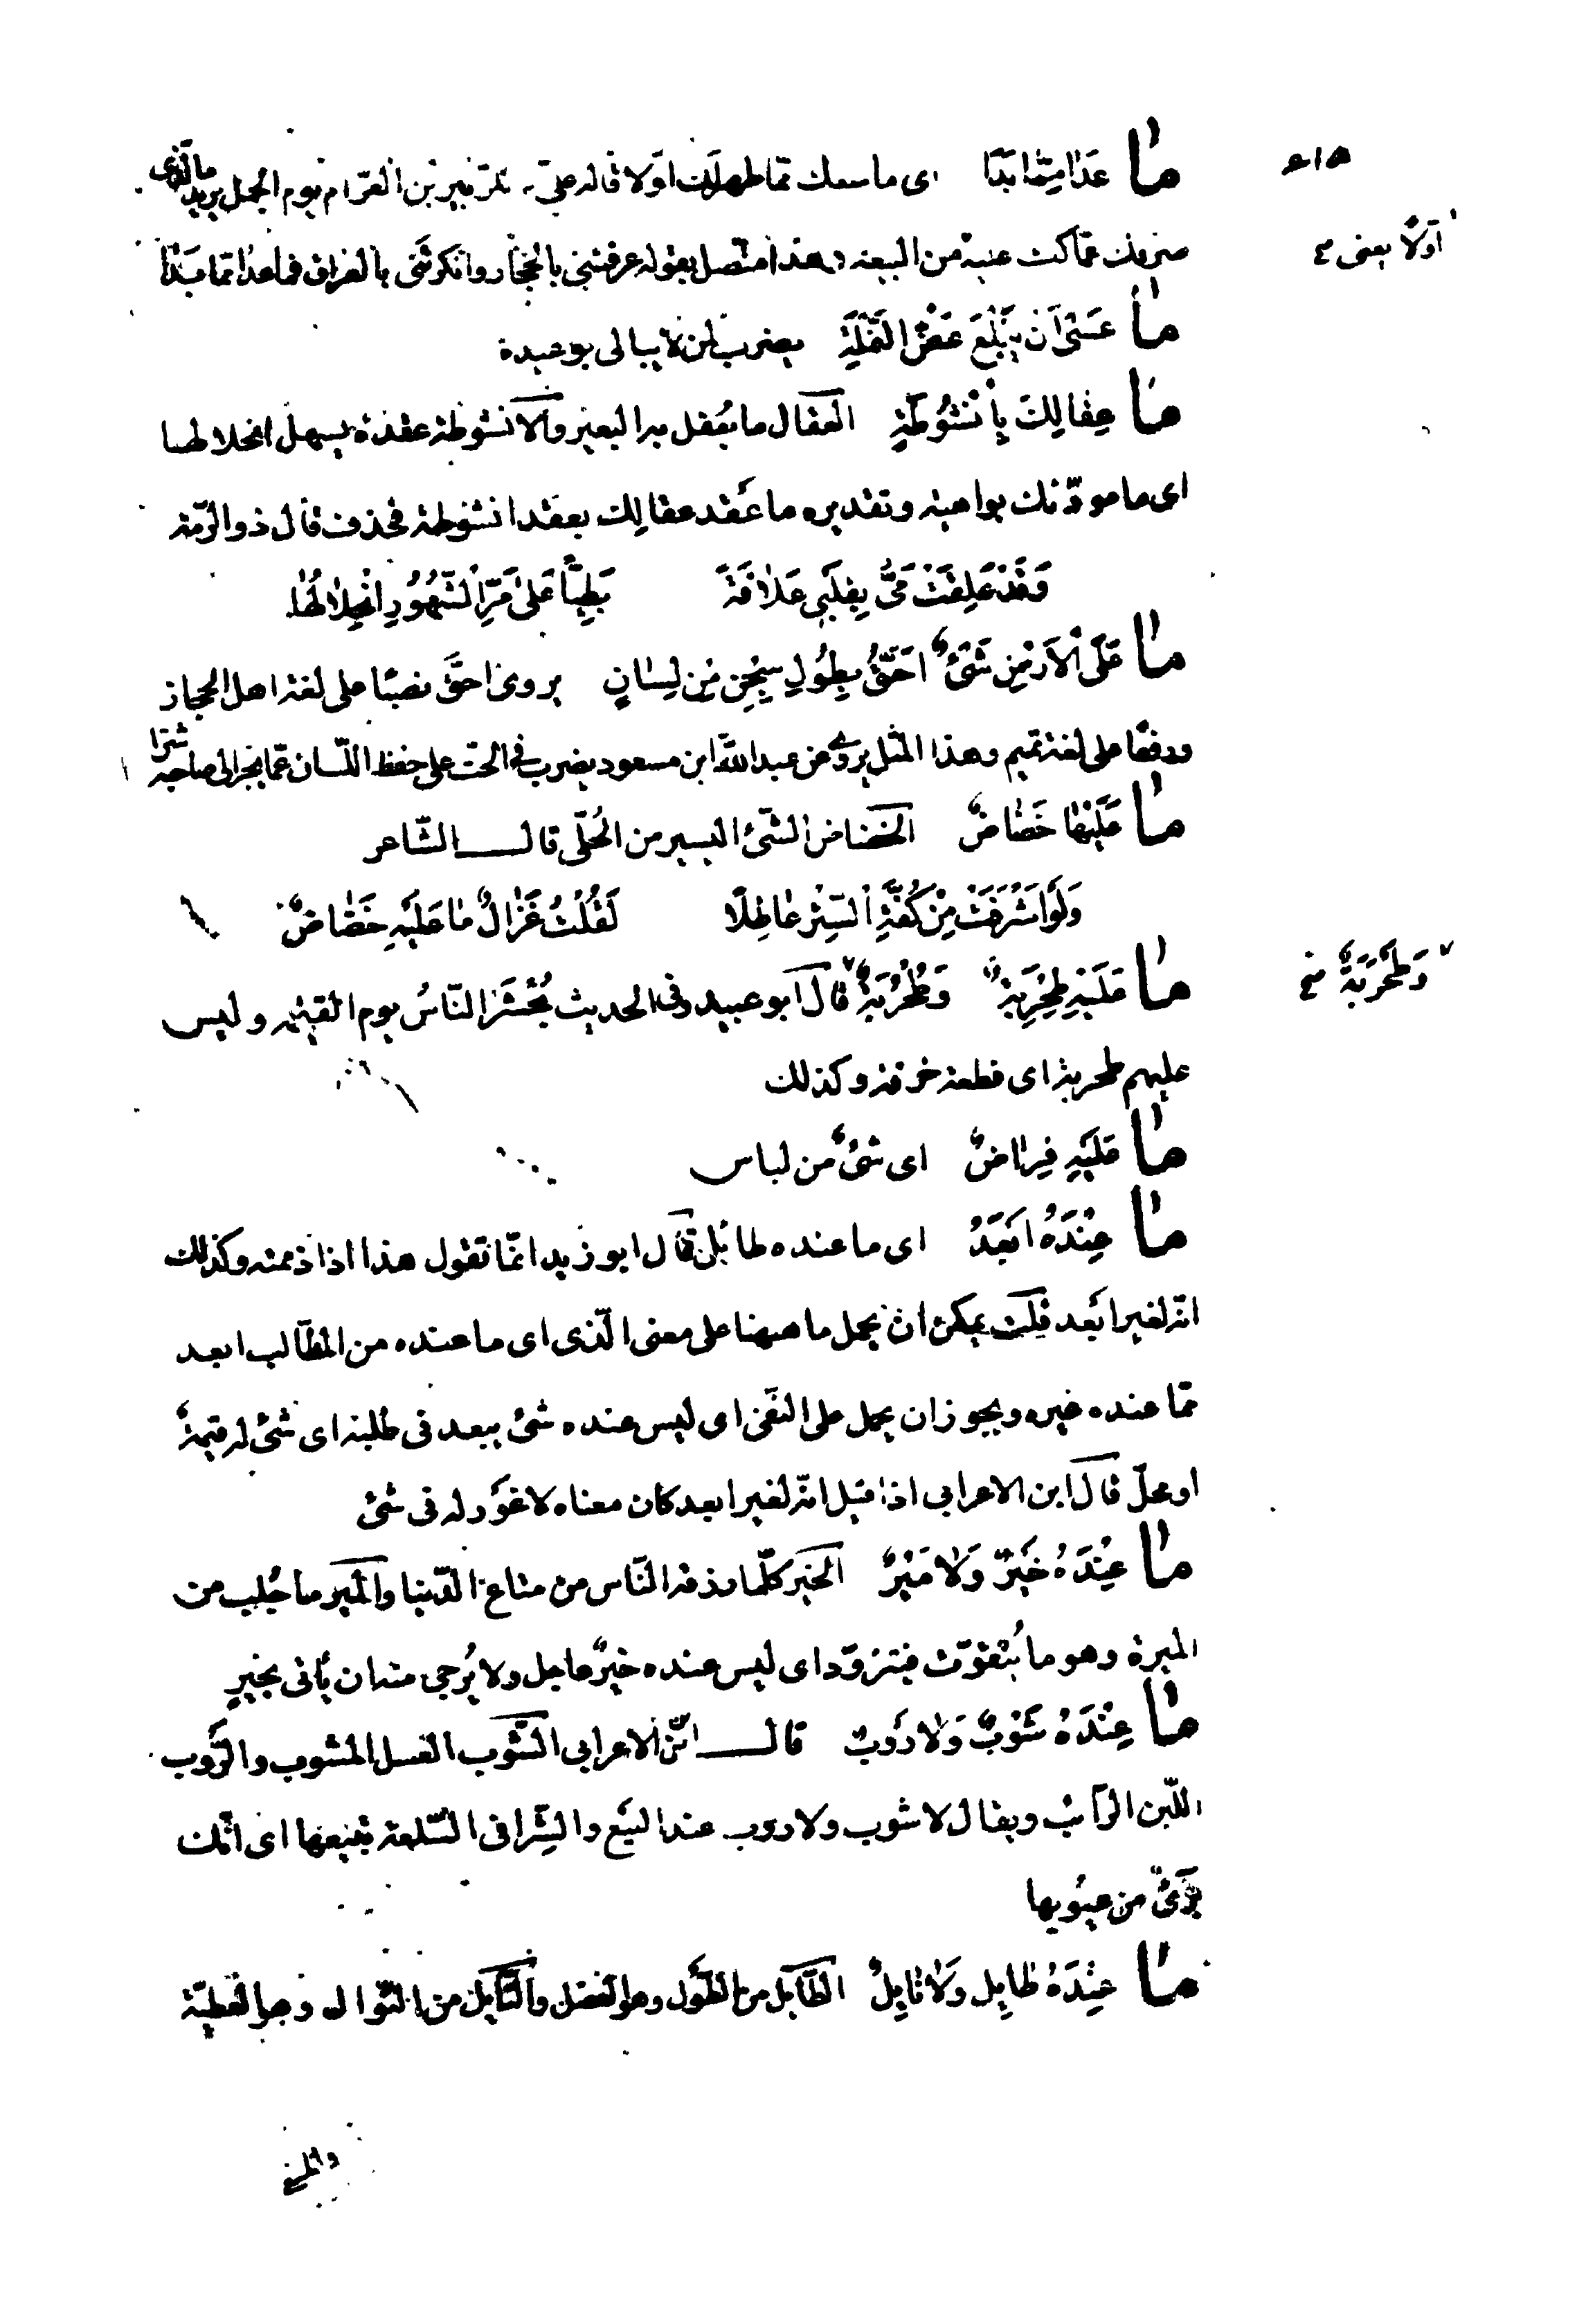 مَا عَدَا مِمَّا بَدَا اى ما منعك مما ظهر لك اوّلا قاله علىّ للزبير بن العوّام يوم الجمل يريد ما الذى
صرفك عمّا كنت عليه من البيعه وهذا متّصل بقوله عرفتنى بالحجاز وانكرتنى بالعراق فما عدا ممّا بَدَا
اوّلًا بعنى
مَا عَسَىٰ اَنْ يَبْلُغَ عَضُّ النَّمْلَةِ يضرب لمن لا يبالى بوعيده
مَا عِقَالُكَ بِأُنْشُوطَةٍ العقال ما يُعقل به البعير والانشوطة عقدة يسهل انحلالها
اى ما مودّتك بواهية وتقديره ما عَقد عقالك بعقد انشوطة فحذف قال ذو الرّمّة
وَقَدْ عَلِقَتْ مَىٌّ بِقَلْبِى عَلَاقَةً بَطِيئًا عَلىٰ مَرِّ الشُّهُورِ انْحِلَالُهَا
مَا عَلَى الْاَرْضِ شَىْءٌ اَحَقُّ بِطُولِ سِجْنٍ مِنْ لِسَانٍ يروى احقَّ نصبًا على لغة اهل الحجاز
ورفعًا على لغة تميم وهذا المثل يروى عن عبد الله ابن مسعود يضرب فى الحثّ على حفظ اللّسان عمّا يجر الى صاحبه شرّا
مَا عَلَيْهَا خَضَاضٌ الخضاض الشّىء اليسير من الحُلّى قال الشّاعر
وَلَوْ اَشْرَفَتْ مِنْ كُفَّةِ السِّتْرِ عَاطِلًا لَقُلْتُ غَزَالٌ مَا عَلَيْهِ خَضَاضٌ
مَا عَلَيْهِ طِحْرِبَةٌ وَطُحْرُبَةٌ قال ابو عبيد وفى الحديث يُحْشَرُ النّاسُ يوم القيمة وليس
وَطَحْرَبَةٌ
عليهم طحربة اى قطعة خرقة وكذلك
مَا عَلَيْهِ فِرَاضٌ اى شىءٌ من لباس
مَا عِنْدَهُ اَبْعَدُ اى ما عنده طائل قال ابو زيد انّما تقول هذا اذا ذممته وكذلك
انّه لغير ابعد قلت يمكن ان يحمل ما ههنا على معنى الّذى اى ما عنده من المطّالب ابعد
ممّا عند غيره ويجوز ان يحمل على النفى اى ليس عنده شئ يبعد فى طلبه اى شئ له قيمةٌ
او محلّ قال ابن الاعرابى اذا قيل انّه لغير ابعد كان معناه لا غَوْر له فى شئ
مَا عِنْدَهُ خَيْرٌ وَلَا مَيْرٌ الخير كلّ ما رزقه النّاس من متاع الدّنيا والمير ما جُلب من
الميرة وهو ما يُتقوّت فيتزوّد اى ليس عنده خيرٌ عاجل ولا يُرجى منه ان يأتى بخيرٍ
مَا عِنْدَهُ شَوْبٌ وَلَا رَوْبٌ قال ابن الاعرابى الشَّوب العسل المشوب والرَّوب
اللّبن الرّائب ويقال لا شوب ولا روب عند البيع والشّرا فى السّلعة يبيعها اى انّك
برئٌ من عيُوبها
مَا عِنْدَهُ طَايِلٌ وَلَا نَايِلٌ الطّايل من الطَّول وهو الفضل والنّايل من النّوال وهو العطيّة
والمعنى